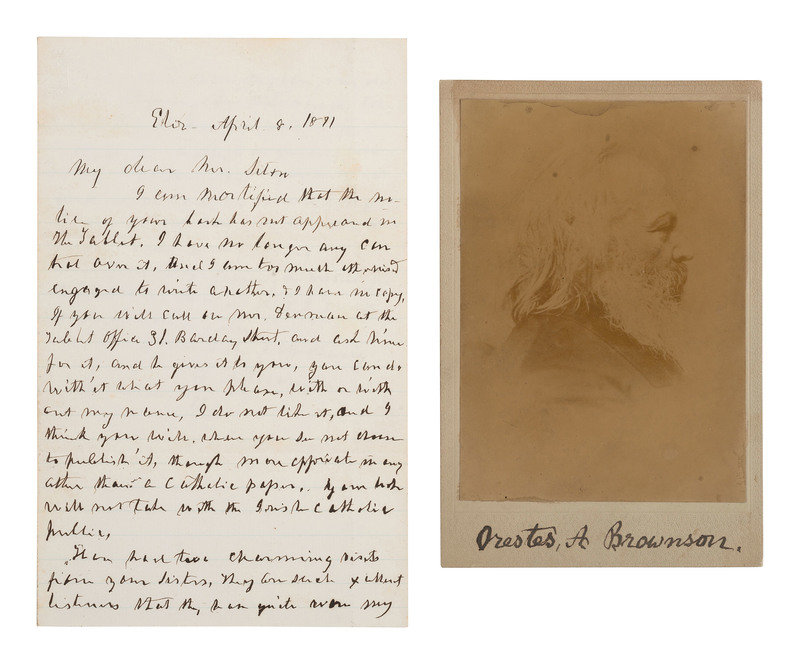 Eliz- April 8. 1871
My dear Mr. Seton
I am mortified that the no-
tice of your book has not appeared in
the Tablet. I have no longer any con
trol over it, and I am too much otherwise
engaged to write another. & I have no copy,
If you will call on Mr. Denman at the
Tablet office 31. Barclay Street, and ask him
for it, and he gives it to you, you can do
with it what you please, with or with
out my name, I do not like it, and I
think you will. when you do not choose
to publish it, though more appropriate in any
other than a Catholic paper. Your book
will not take with the Irish Catholic
public,
I have had two charming visits
from your Sisters, They are such excellent
listeners that they have quite won my
Orestes, A Brownson.